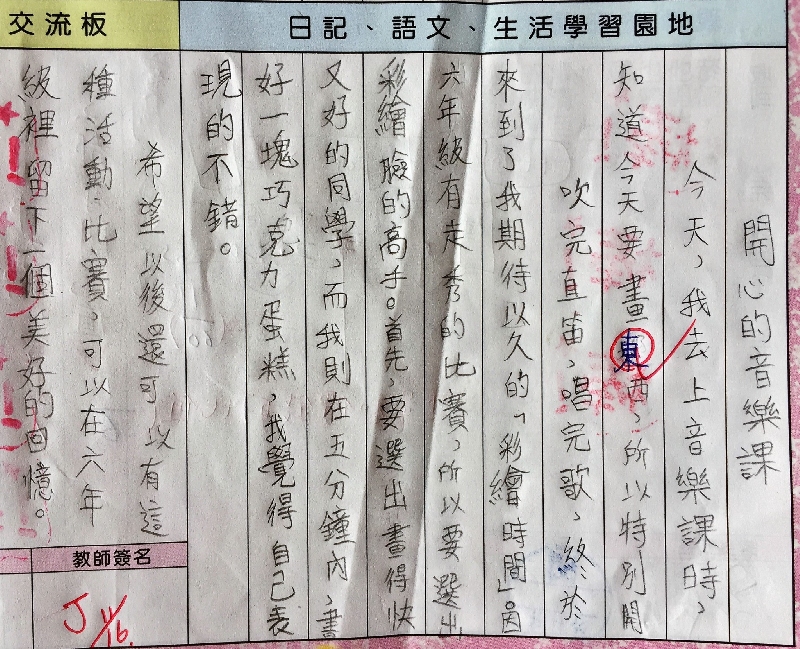 交流板
日記、語文、生活學習園地
開心的音樂課
今天,我去上音樂課時,
知道今天要畫東西,所以特別開
吹完直笛,唱完歌,終於
來到了我期待以久的「彩繪時間」因
六年級有走秀的比賽,所以要選出
彩繪臉的高手。首先,要選出畫得快
又好的同學,而我則在五分鐘內,畫
好一塊巧克力蛋糕,我覺得自己表
現的不錯。
希望以後還可以有這
種活動比賽,可以在六年
級裡留下一個美好的回憶。
教師簽名
J 11/16.